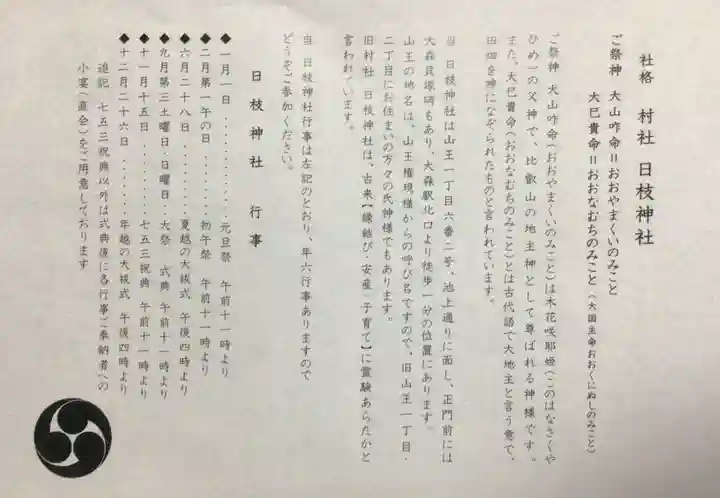 社格　村社　日枝神社
ご祭神　大山咋命＝おおやまくいのみこと
大巳貴命＝おおなむちのみこと（大国主命おおくにぬしのみこと）
ご祭神　大山咋命（おおやまくいのみこと）は木花咲耶姫（このはなさくや
ひめ）の父神で、比叡山の地主神として尊ばれる神様です。
また、大巳貴命（おおなむちのみこと）とは古代語で大地主と言う意で、
田畑を神になぞられたものと言われています。
当　日枝神社は山王一丁目六番二号、池上通りに面し、正門前には
大森貝塚碑もあり、大森駅北口より徒歩一分の位置にあります。
山王の地名は。山王権現様からの呼び名ですので、旧山王一丁目・
二丁目にお住まいの方々の氏神様でもあります。
旧村社　日枝神社は、古来【縁結び・安産・子育て】に霊験あらたかと
言われています。
当　日枝神社行事は左記のとおり、年六行事ありますので
どうぞご参加ください。
日　枝　神　社　　行　事
◆一月一日............元旦祭　午前十一時より
◆二月第一午の日......初午祭　午前十一時より
◆六月二十八日........夏越の大祓式　午後四時より
◆九月第三土曜日・日曜日..大祭　式典　午前十一時より
◆十一月十五日......七五三祝典　午前十一時より
◆十二月二十六日.......年越の大祓式　午後四時より
追記　七五三祝典以外は式典後に各行事ご奉納者への
小宴（直会）をご用意しております